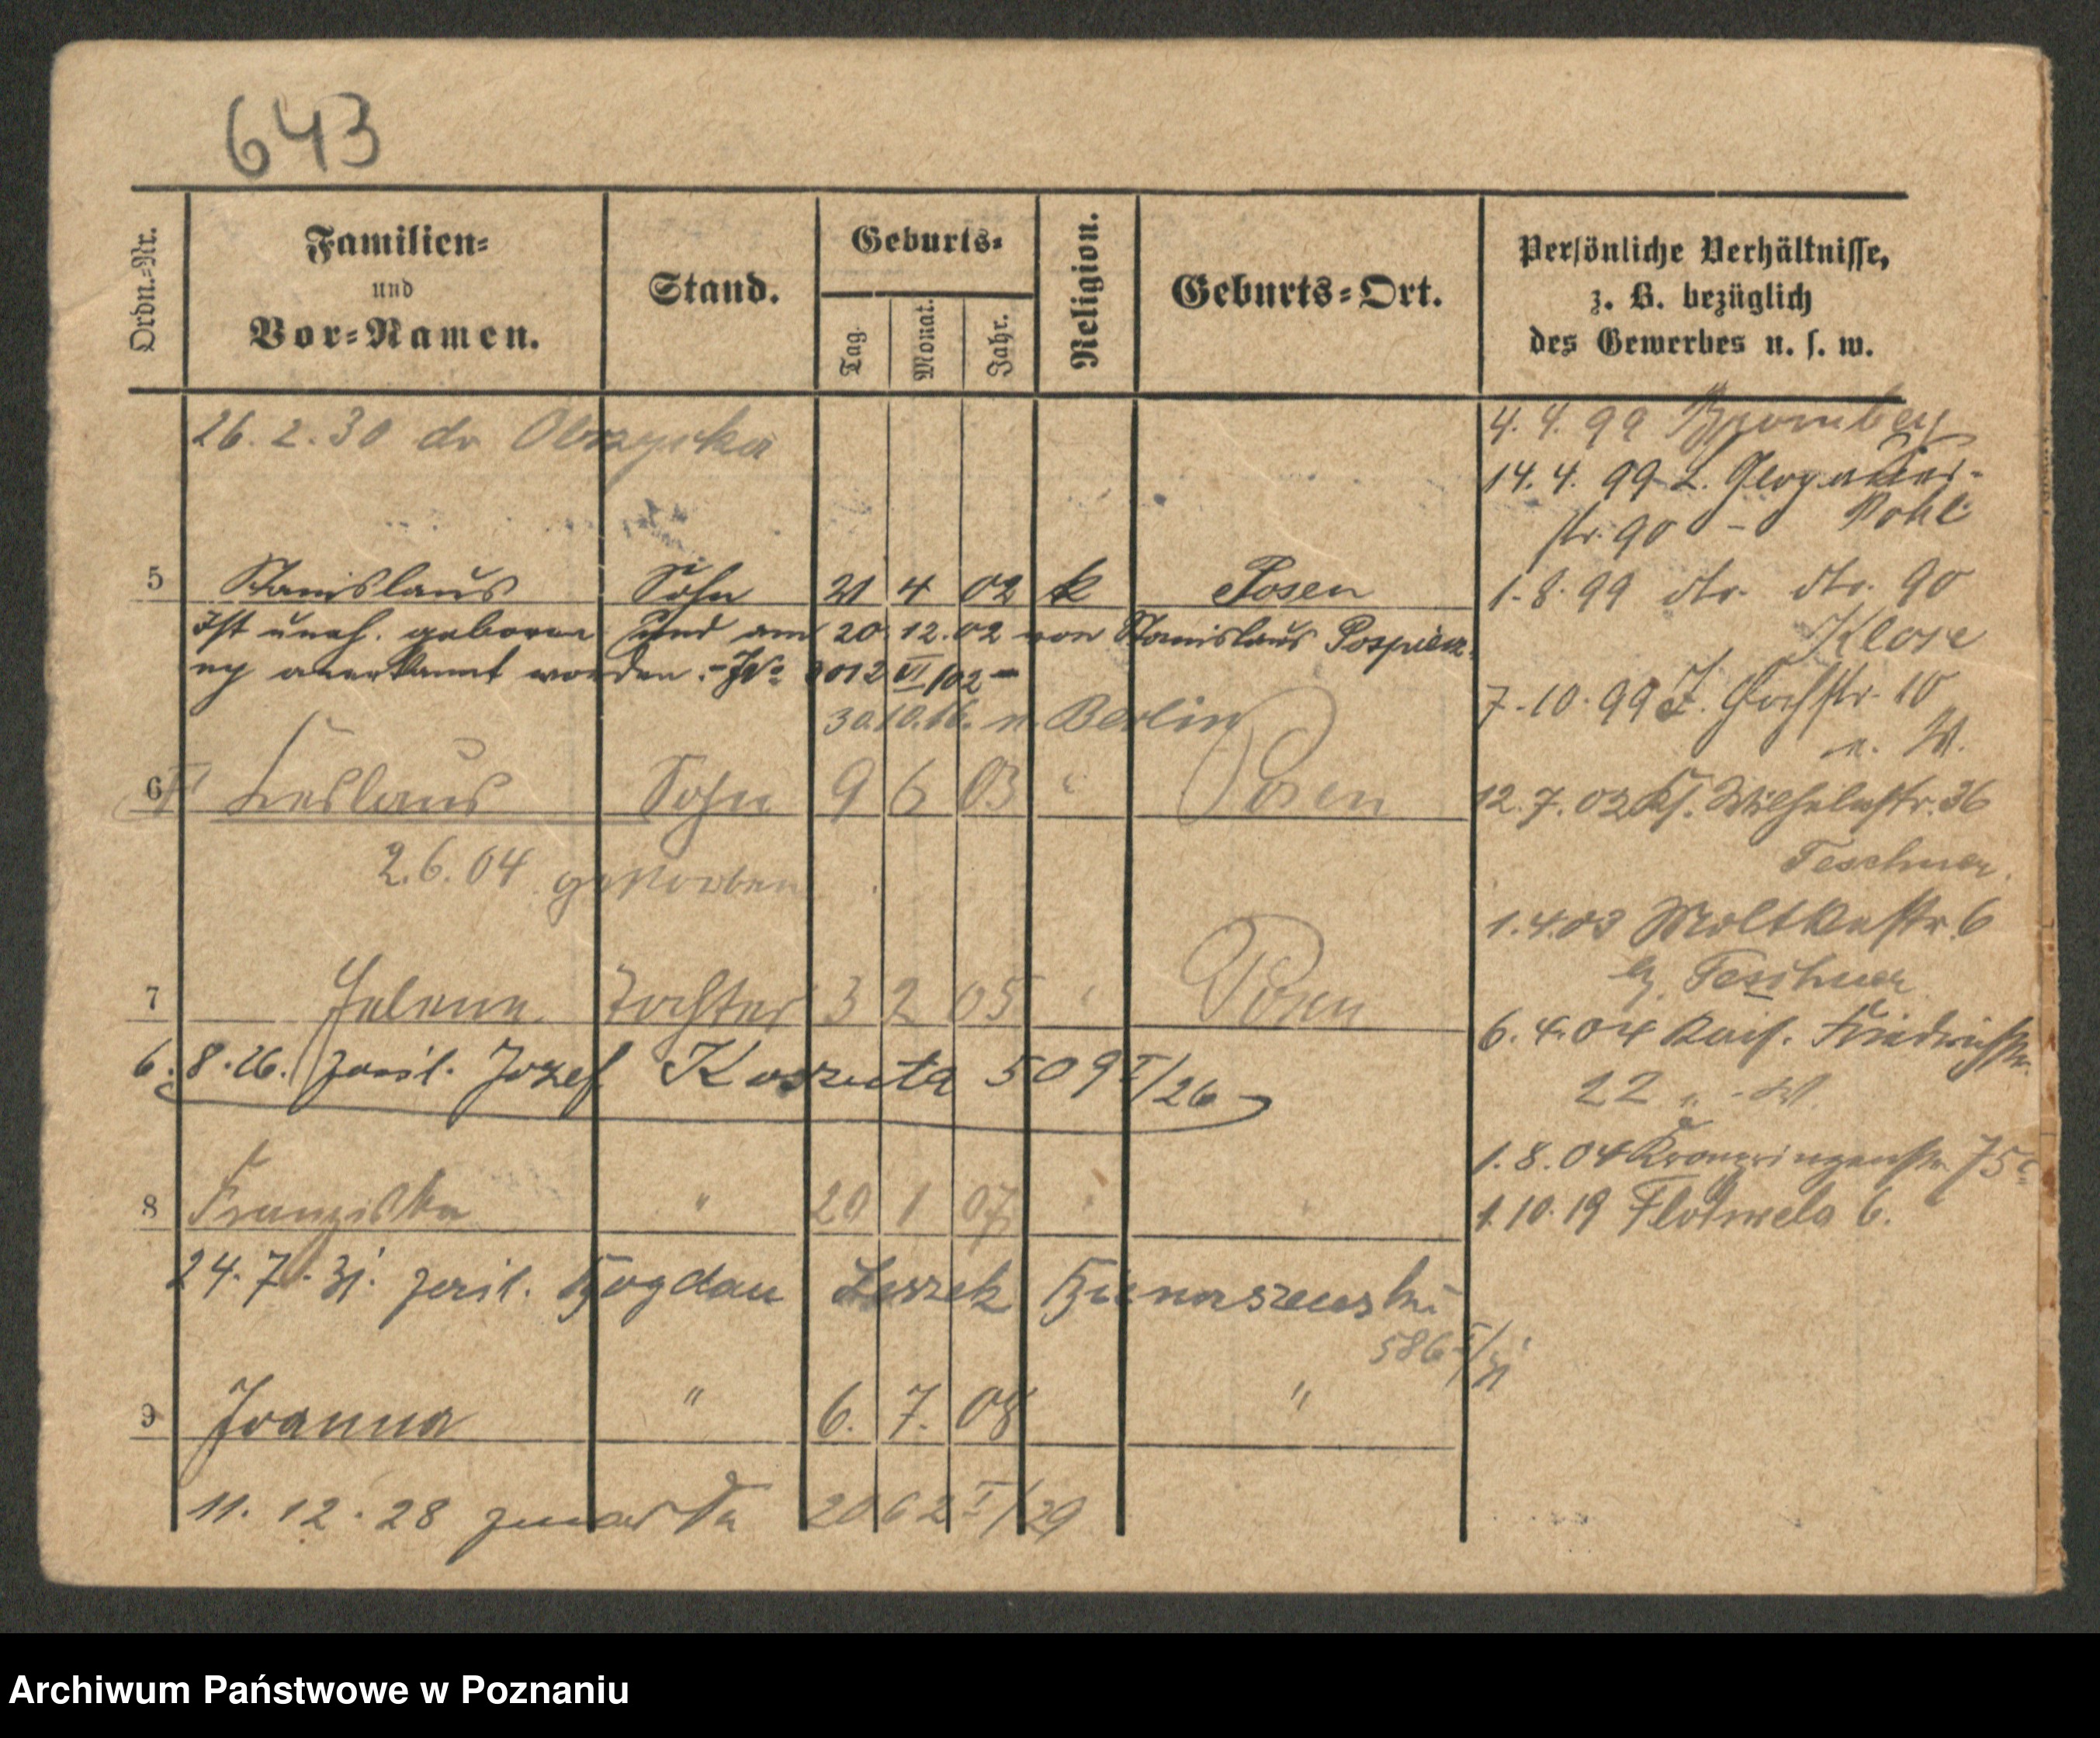 643
Ordn.=Nr.
Familien=
und
Vor=Namen.
Stand.
Geburts=
Tag.
Monat.
Jahr.
Religion.
Geburts=Ort.
Persönliche Verhältnisse,
z. B. bezüglich
des Gewerbes u. s. w.
26.2.30 do Obrzycka
5 Stanislaus Sohn 21 4 02 k Posen
Ist uneh. geboren und am 20.12.02 von Stanislaus Pospiesz=
ny anerkannt worden.
30.10.16. n. Berlin
6 Leslaus Sohn 9 6 03 " Posen
2.6.04 gestorben
7 Helene Tochter 3 2 05 " Posen
6.8.26. Józef Koszuta 509 I/26
8 Franziska " 20 1 07 " "
24.7.31. Bogdan Leszek
586 I/31
9 Joanna " 6. 7. 08 "
11.12.28 2062 I/29
4.4.99 Bromberg
14.4.99 Glogauer=
str. 90 - Pohl
1.8.99 dto. dto. 90
Klose
7.10.99 10
12.7.02 Wilhelmstr. 36
Teschner.
1.4.03 Moltkestr. 6
b. Teschner
6.4.04 Kais. Friedrichstr.
22
1.8.04 Kronprinzenstr. 75
1.10.19 6.
Archiwum Państwowe w Poznaniu